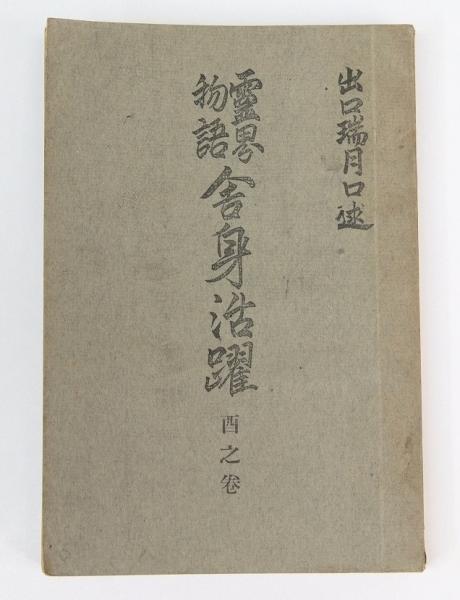 出口瑞月口述
靈界
物語
舎身活躍
酉之卷